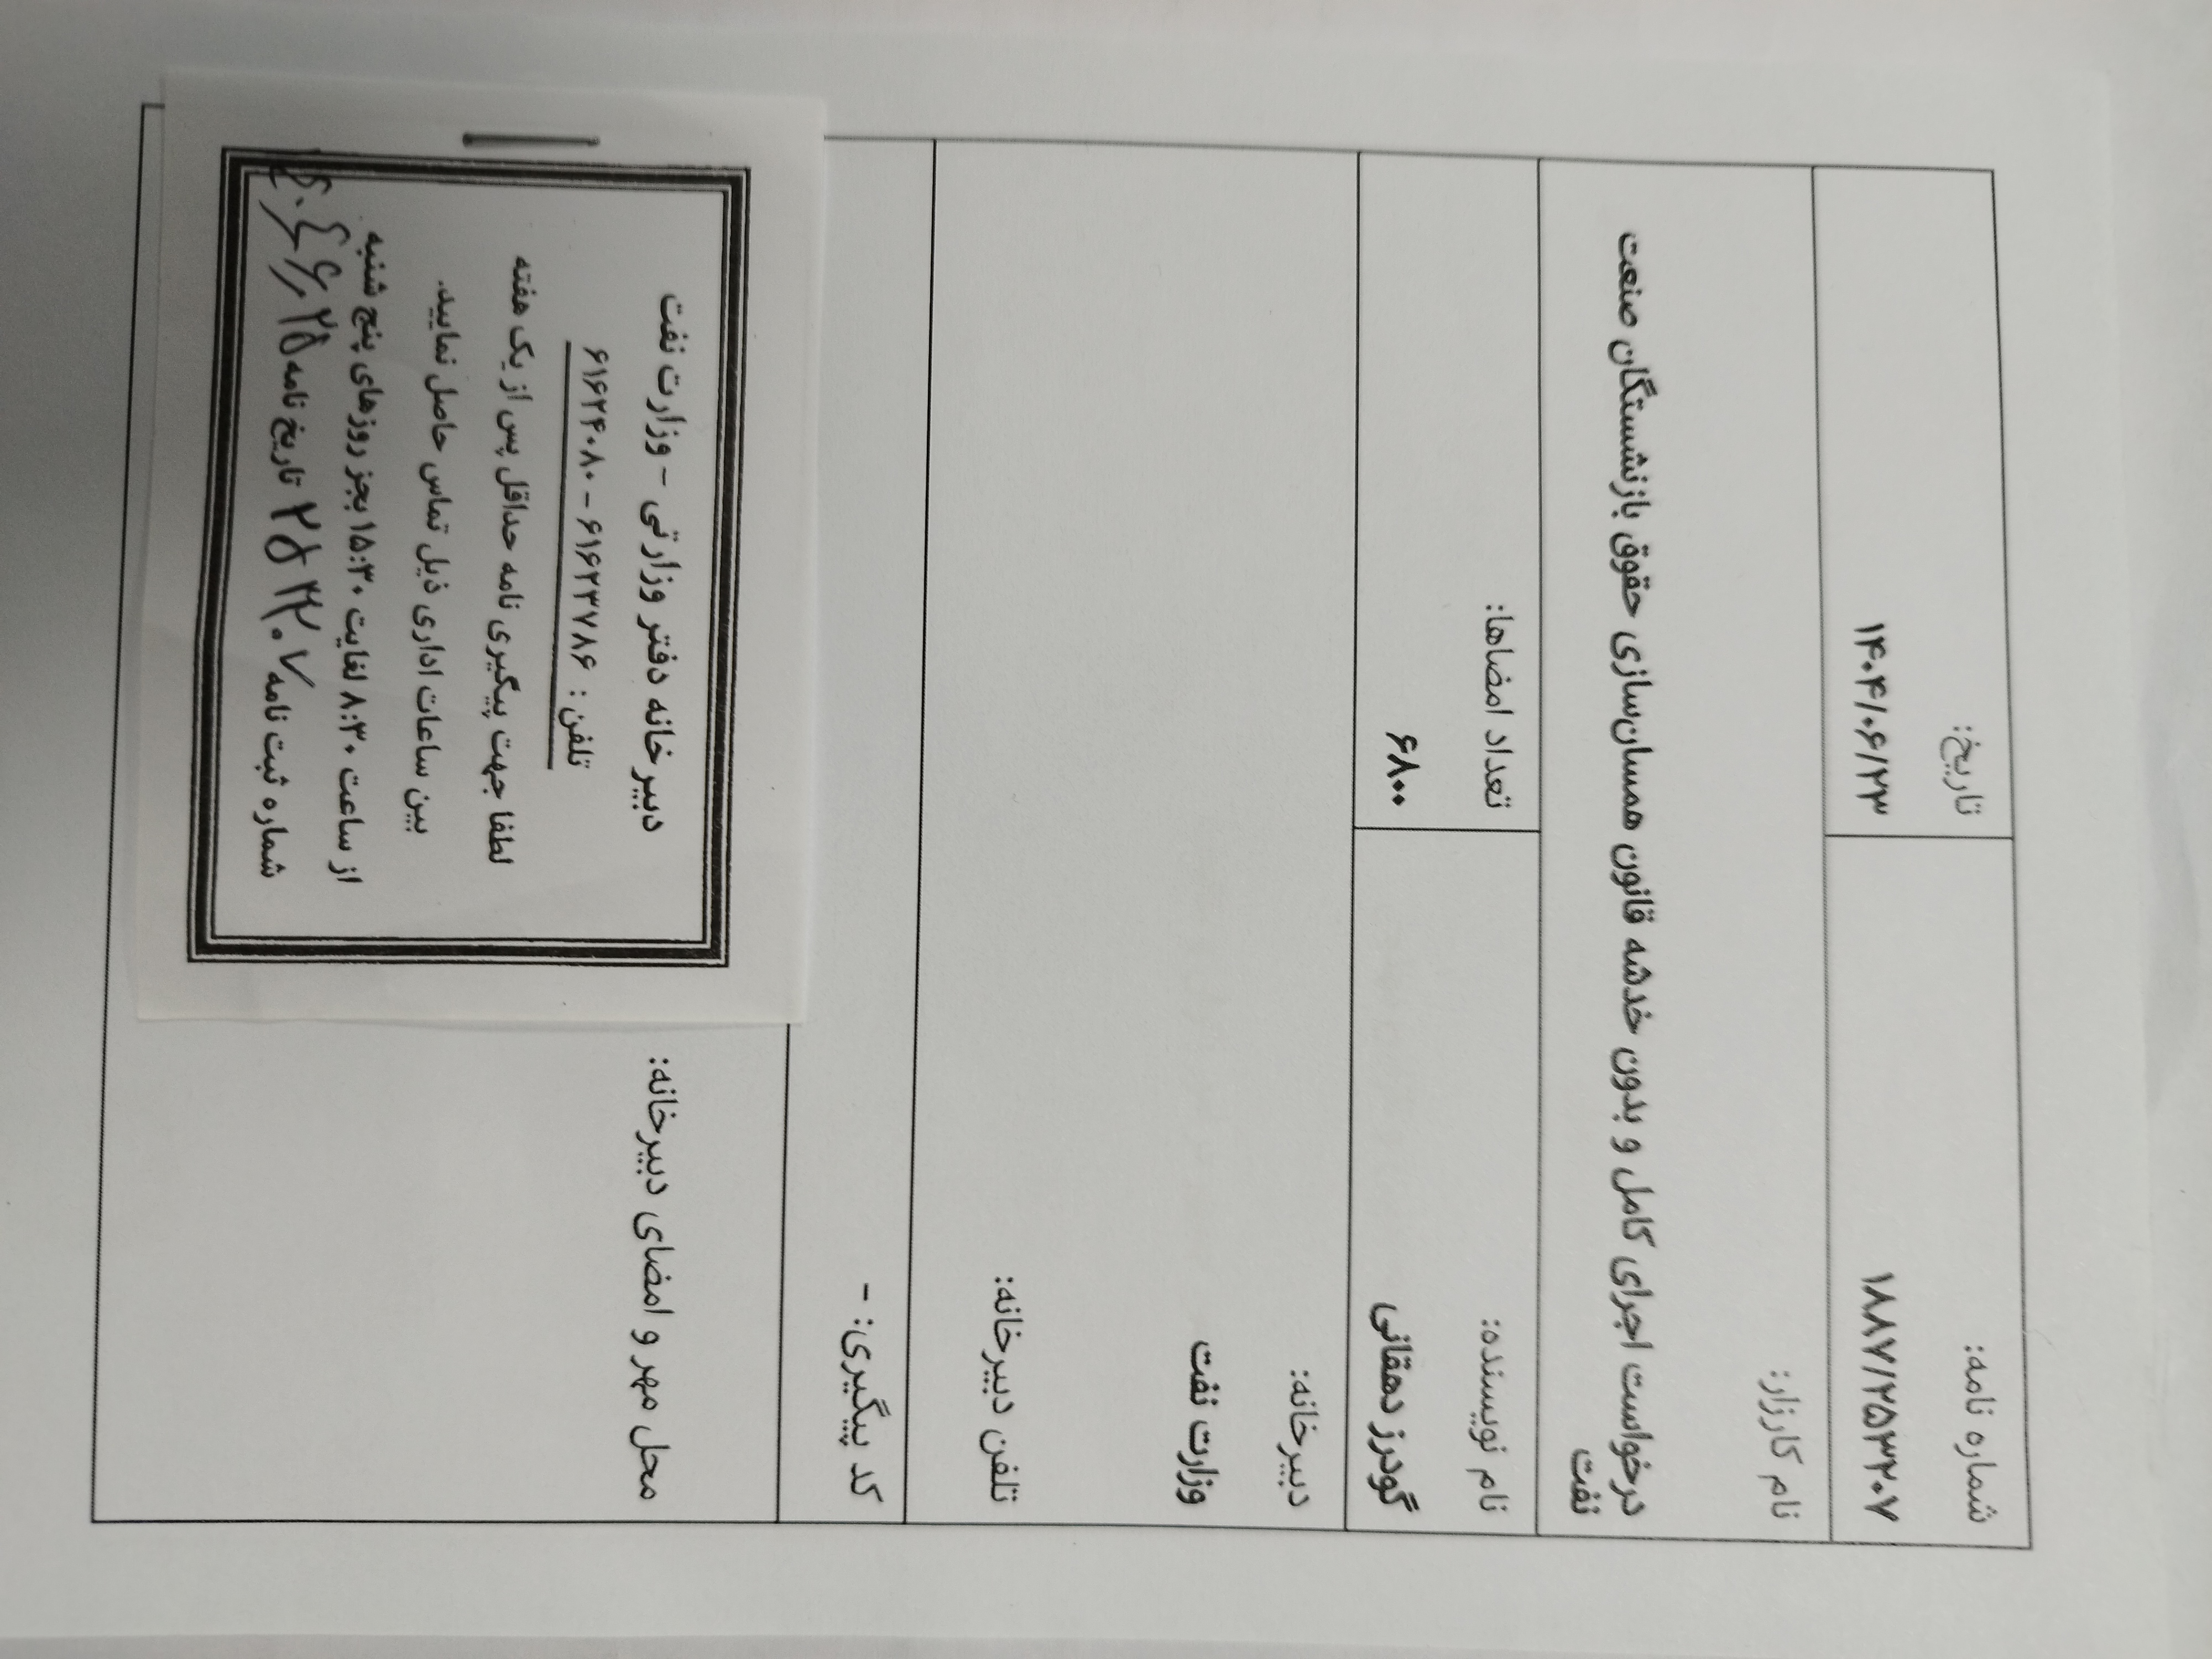 شماره نامه:
۱۸۸۷/۲۵۳۲۰۷
تاریخ:
۱۴۰۴/۰۶/۲۳
نام کارزار:
درخواست اجرای کامل و بدون خدشه قانون همسان‌سازی حقوق بازنشستگان صنعت
نفت
نام نویسنده:
گودرز دهقانی
تعداد امضاها:
۶۸۰۰
دبیرخانه:
وزارت نفت
تلفن دبیرخانه:
کد پیگیری: -
محل مهر و امضای دبیرخانه:
دبیرخانه دفتر وزارتی - وزارت نفت
تلفن: ۶۱۶۲۳۷۸۶ - ۶۱۶۲۴۰۸۰
لطفا جهت پیگیری نامه حداقل پس از یک هفته
بین ساعات اداری ذیل تماس حاصل نمایید.
از ساعت ۸:۳۰ لغایت ۱۵:۳۰ بجز روزهای پنج شنبه
شماره ثبت نامه ۲۵۳۲۰۷ تاریخ نامه